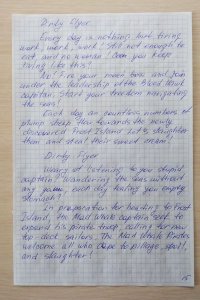 Dirty Flyer
Every day is nothing but tiring
work, work, work! Still not enough to
eat and no woman! Can you keep
living like this?
No! Fire your mean boss and join
under the leadership of the Blood Hawk
captain! Start your freedom navigating
the seas!
Each day an countless numbers of
plump sheep flow towards the newly
discovered Frost Island. Let's slaughter
them and steal their sweet cream!
Dirty Flyer
Weary of listening to your stupid
captain? Wandering the seas without
any game, each day feeling you empty
stomach?
In preparation for heading to Frost
Island, the Mad Whale captain seek to
expand his pirate troop, calling for new
top-deck sailors. The Mad Whale Pirates
welcome all who dare to pillage, spoil,
and slaughter!